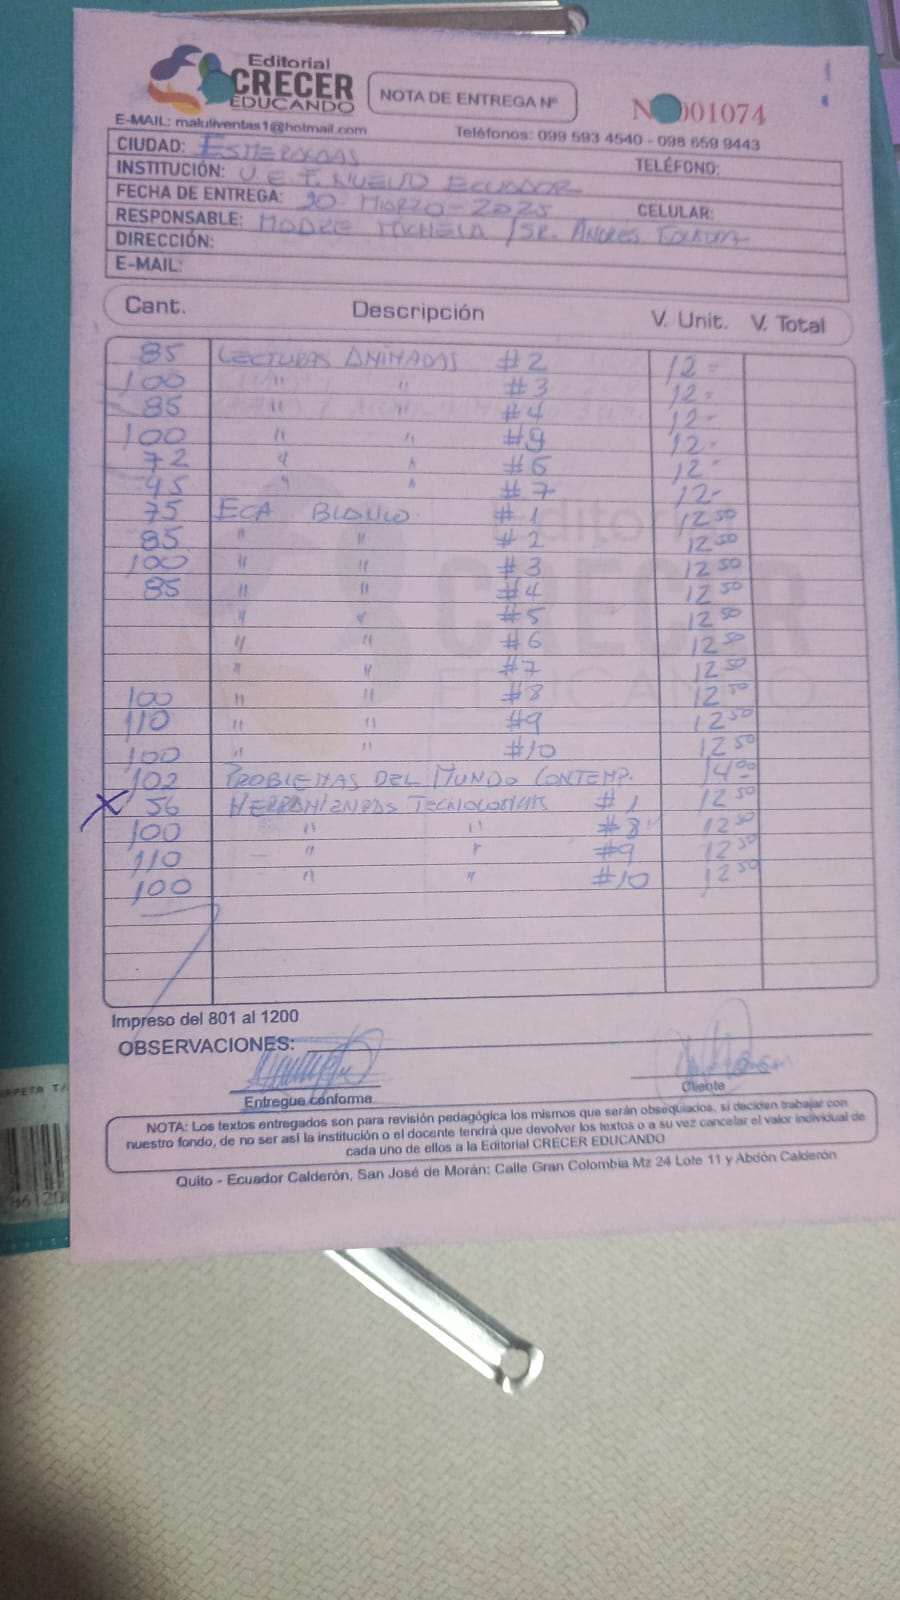 Editorial
CRECER
EDUCANDO
NOTA DE ENTREGA Nº
001074
E-MAIL: maluliventas1@hotmail.com
Teléfonos: 099 593 4540 - 098 659 9443
CIUDAD: ESMERALDAS
TELÉFONO:
INSTITUCIÓN: U.E.F. NUEVO ECUADOR
FECHA DE ENTREGA: 20 MARZO-2025
CELULAR:
RESPONSABLE: MADRE /SR. ANDRES
DIRECCIÓN:
E-MAIL:
Cant. Descripción V. Unit. V. Total
85 LECTURAS ANIMADAS #2 12-
100 " " #3 12-
85 " " #4 12-
100 " " 12-
72 " " #6 12-
" " #7 12-
75 ECA BLANCO. #1 12 50
85 " " #2 12 50
100 " " #3 12 50
85 " " #4 12 50
" " #5 12 50
" " #6 12 50
" " #7 12 50
100 " " #8 12 50
110 " " #9 12 50
100 " " #10 12 50
102 PROBLEMAS DEL MUNDO CONTEMP. 14 00
X 56 HERRAMIENTAS TECNOLOGICAS #1 12 50
100 " " #8 12 50
110 " " #9 12 50
100 " " #10 12 50
Editorial
CRECER
EDUCANDO
Impreso del 801 al 1200
OBSERVACIONES:
Entregue conforme
Cliente
NOTA: Los textos entregados son para revisión pedagógica los mismos que serán obsequiados, si deciden trabajar con
nuestro fondo, de no ser así la institución o el docente tendrá que devolver los textos o a su vez cancelar el valor individual de
cada uno de ellos a la Editorial CRECER EDUCANDO
Quito - Ecuador Calderón, San José de Morán: Calle Gran Colombia Mz 24 Lote 11 y Abdón Calderón